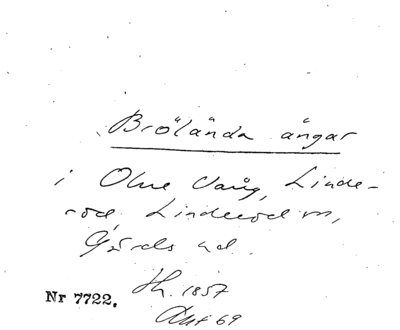 Brölända ängar
i Olne Vång, Linde-
röd. Linderöd sn,
Gärds hd.
Nr 7722.
Sk. 1857
Akt 69